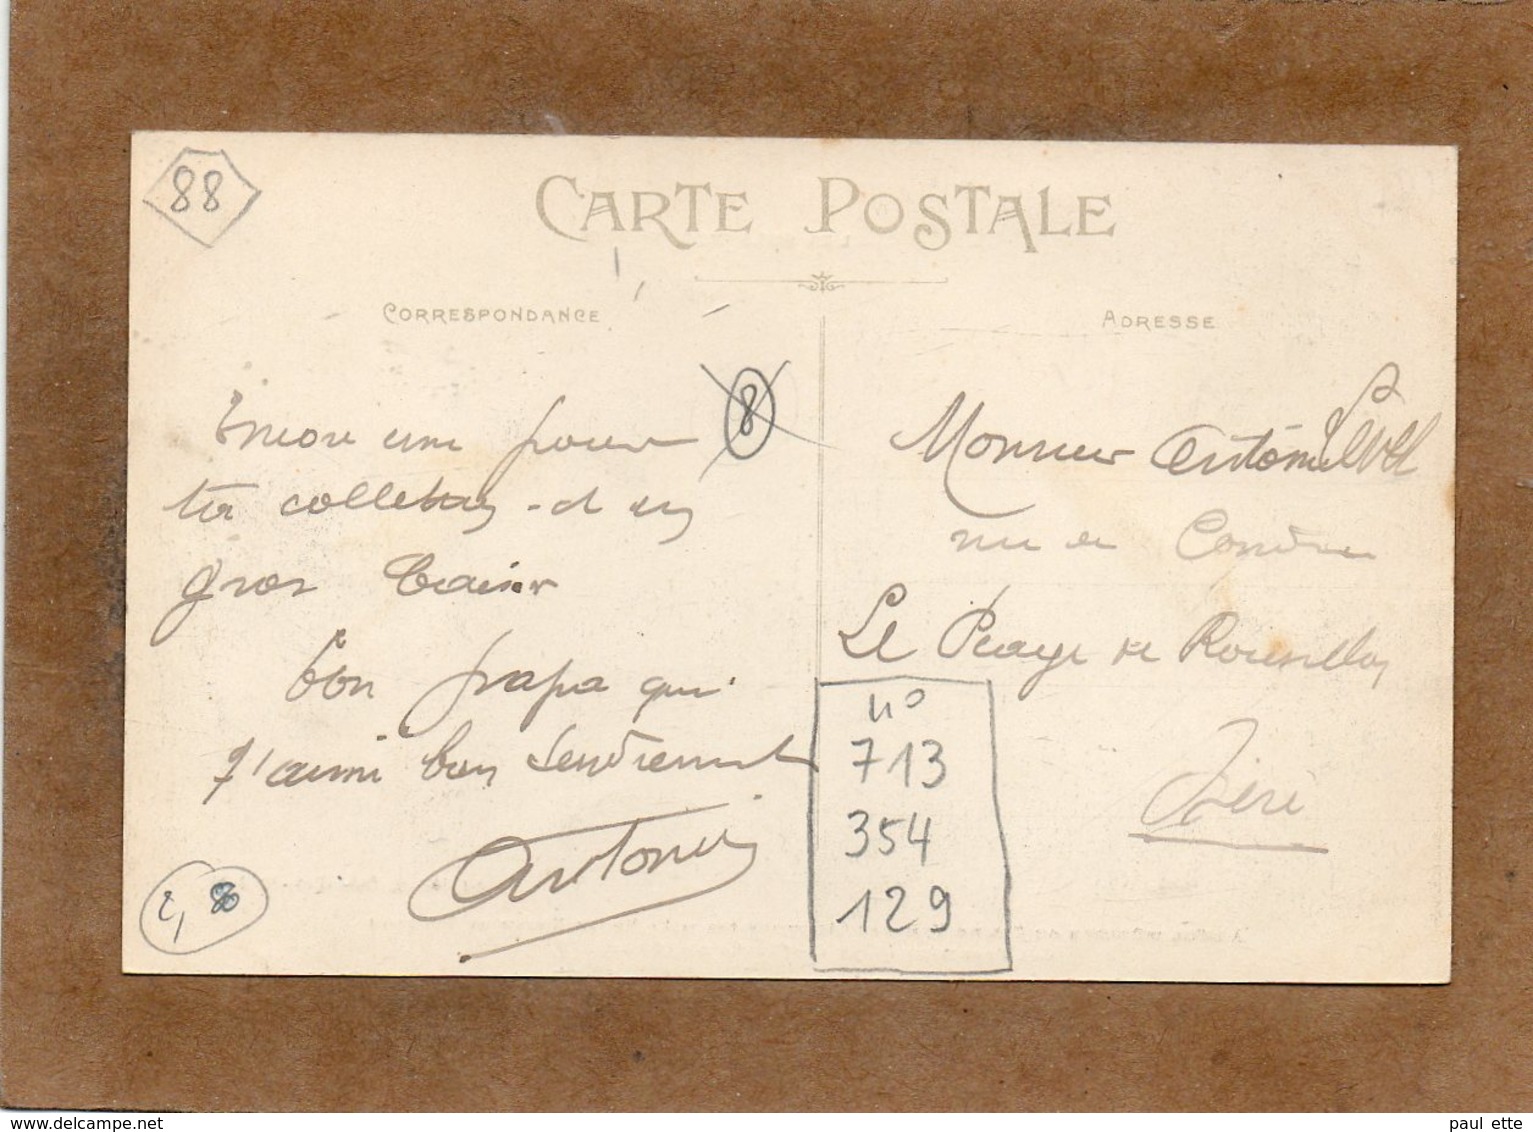 88
CARTE POSTALE
CORRESPONDANCE
ADRESSE
8
Encore une pour
ta collection et un
gros baiser
bon papa qui
t'aime bien tendrement
Antonin
2,80
Monsieur Antonin
rue de Condrieu
Le Péage de Roussillon
Isère
n°
713
354
129
www.delcampe.net
paul ette